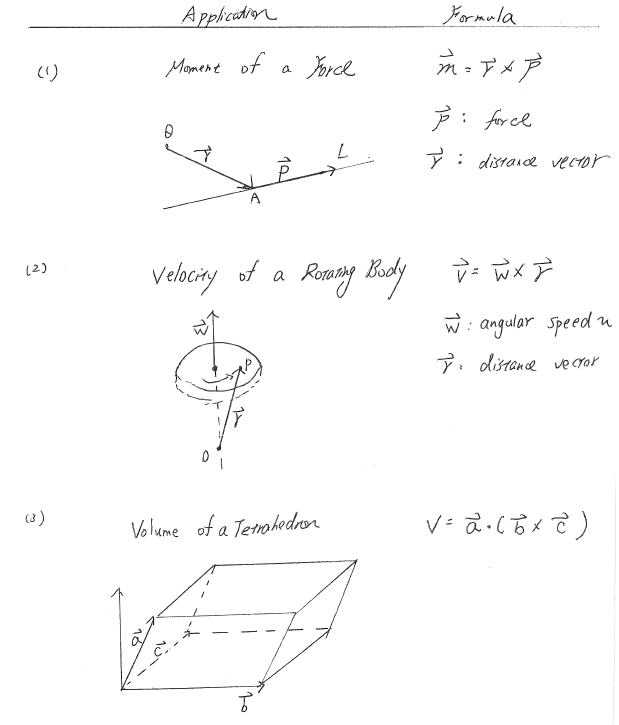 Application Formula
(1) Moment of a Force m⃗ = r⃗ × p⃗
p⃗ : force
r⃗ : distance vector
O
r⃗
P⃗
L
A
(2) Velocity of a Rotating Body v⃗ = w⃗ × r⃗
w⃗ : angular speed
r⃗ : distance vector
w⃗
P
r⃗
O
(3) Volume of a Tetrahedron V = a⃗ · ( b⃗ × c⃗ )
a⃗
c⃗
b⃗